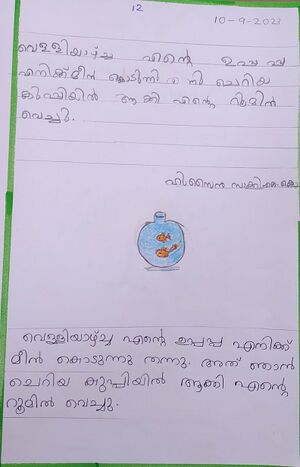 12
10-9-2023
വെള്ളിയാഴ്ച്ച എന്റെ ഉപ്പ
എനിക്ക് മീൻ കൊടുന്നി നി ചെറിയ
കുപ്പിയിൽ ആക്കി എന്റെ റൂമിൽ
വെച്ചു.
വെള്ളിയാഴ്ച്ച എന്റെ ഉപ്പപ്പ എനിക്ക്
മീൻ കൊടുന്നു തന്നു. അത് ഞാൻ
ചെറിയ കുപ്പിയിൽ ആക്കി എന്റെ
റൂമിൽ വെച്ചു.